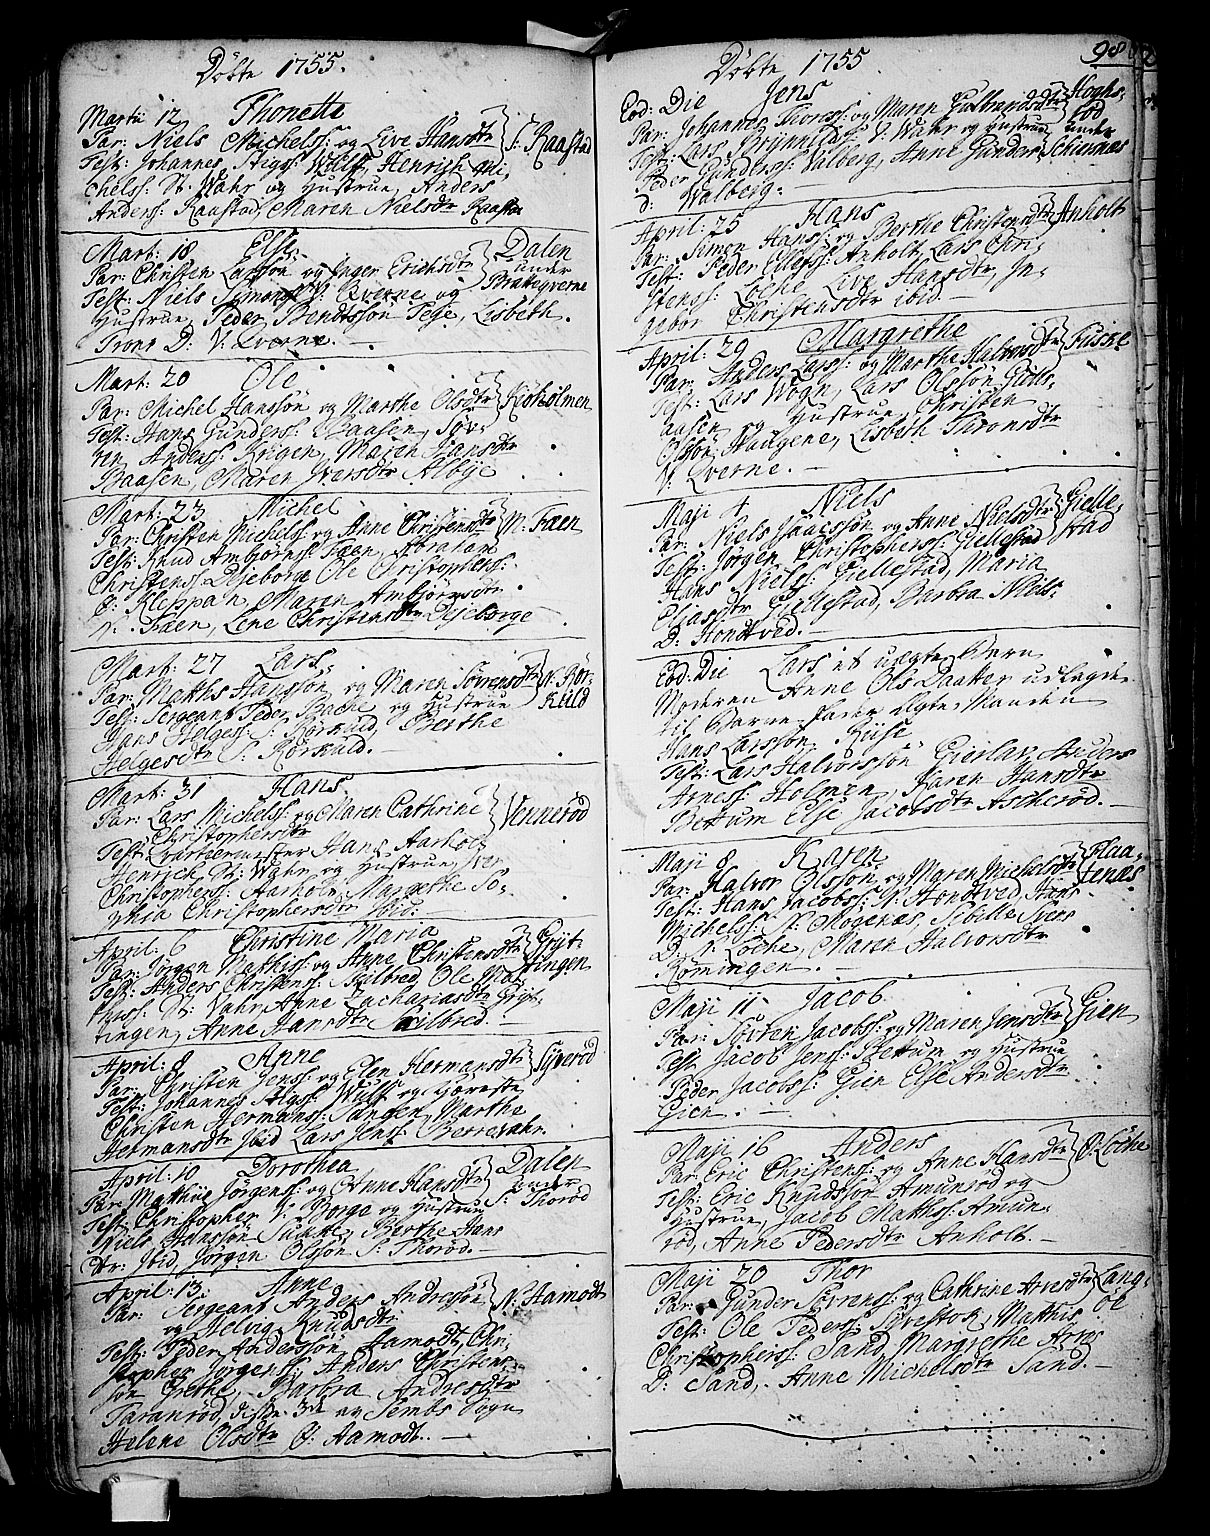 Döbte 1755.
Martii 12 Thonette
Par: Niels Michelss: og Live Hansdtr S: Raastad
Test: Johannes Stigs: Wulf, Henrich Mi-
chelss: N. Wahr og Hustrue, Anders
Anderss: Raastad, Maren Nielsdtr Raastad
Mart: 18 Else
Par: Christen Larsön og Inger Erichsdtr Dalen
under
Brækeqverne
Test: Niels Simonss: V: Qverne og
Hustrue, Peder Bendtssön Tege, Lisbeth
Trons D: V: Qverne.
Mart: 20 Ole
Par: Michel Hanssön og Marthe Olsdtr Kiöholmen
Test: Hans Gunderss: Baasen, Söv-
ren Anderss: Krigen, Maren Hansdtr
Baasen, Maren Iversdtr Albye
Mart: 23 Michel
Par: Christen Michelss: og Anne Christensdtr N: Faen
Test: Knud Ambjörnss: Faen, Abraham
Christenss: Dyseborge Ole Christophers:
Ö: Kleppan, Maren Ambjörnsdtr
N: Faen, Lene Christensdtr Dyseborge
Mart: 27 Lars.
Par: Matths Hanssön og Maren Sövrensdtr N: Rör-
kuld
Test: Sergeant Peder Bache og Hustrue
Hans Helgess: S: Rörkuld, Berthe
Helgesdtr S: Rörkuld.
Mart: 31 Hans.
Par: Lars Michelss: og Maren Cathrine Venneröd
Christophersdtr
Test: Qvarteermester Hans Aarholt
Henrich N: Wahr og Hustrue, Iver
Christopherss: Aarholt, Margrethe So-
phia Christophersdtr ibid:
April: 6 Christine Maria
Par: Jörgen Mathiss: og Anne Christensdtr Gryt-
tingen
Test: Anders Christenss: Skilbred, Ole Mat-
thss: N: Vahr, Anne Zachariasdtr Gryt-
tingen, Anne Hansdtr Skilbred.
April: 8 Anne
Par: Christen Jenss: og Elen Hermansdtr Syveröd
Test: Johannes Stigs: Wulf og Kjereste
Christen Hermanss: Tangen, Marthe
Hermansdtr Ibid Lars Jenss: Berrevahr.
April: 10 Dorothea
Par: Matthie Jörgenss: og Anne Hansdtr Dalen
under
S: Thoröd
Test: Christopher V: Borge og Hustrue
Niels Hanssön Berthe Hans
dtr: Ibid, Jörgen Olssön S: Thoröd.
April: 13. Anne
Par: Sergeant Anders Andresön N: Aamodt
og Helvig Knudsdtr
Test: Peder Anderssön Aamodt, Chri-
stopher Jörgenss: Anders Christens-
sön Grethe, Barbra Andresdtr
Taranröd, disse 3de og Sembs Sogn
Helene Olsdtr Ö: Aamodt.
Döbte 1755
98
Eod: Die Jens
Par: Johannes Thorss: og Maren Gulbrandsdtr Hoghs-
löd
under
Schiernæs
Test: Lars Brynild: V: Wahr og Hustrue
Peder Gunderss: Valberg, Anne Gunders
d: Walberg:
April: 25 Hans
Par: Simen Hanss: og Berthe Christensdtr Anholt
Test: Peder Ellefss: Anholt, Lars Chri-
stenss: Löche Live Hansdtr, In-
gebor Christensdtr ibid.
April: 29 Margrethe
Par: Anders Larss: og Marthe Halvorsdtr Fuske
Test: Lars Wogn, Lars Olssön Guls-
aasen og Hustrue, Christen
Olssön Waugene, Lisbeth Thronsdtr
V: Qverne.
Maji 4 Niels
Par: Niels Isaacssön og Anne Nielsdtr Gielle-
stad
Test: Jörgen Christopherss: Giellestad
Hans Nielss: Giellestad, Maria
Eliasdtr Giellestad, Barbra Niels:
D: Hondtved.
Eod: Die Lars et uægte Barn
Moderen Anne Ols Daatter udlagde
til Barne-Fader Ægte-Manden
Hans Larssön Kiise
Test: Lars Halvorssön Gierlar, Anders
Arness: Holmen, Karen Hansdtr
Bettum Else Jacobsdtr Ascheröd.
Maji 8 Karen
Par: Halvor Olssön og Maren Michelsdtr Flaa-
tenæs
Test: Hans Jacobs: N: Hondtved, Hans
Michelss: N: Mogenæs, Sibille Svens
D: N: Löche, Maren Halvorsdtr
Römingen.
Maji 11 Jacob
Par: Sövren Jacobss: og Maren Jensdtr Gien
Test: Jacob Jenss: Bettum og Hustrue
Peder Jacobss: Gien Else Andersdtr
Gien.
Maji 16 Anders
Par: Eric Christenss: og Anne Hansdtr Ö: Löche
Test: Eric Knudssön Amunröd og
Hustrue, Jacob Matthss: Amun-
röd, Anne Pedersdtr Anholt.
Maji 20 Thor
Par: Gunder Sövrenss: og Cathrine Arvesdtr Lang-
öe
Test: Ole Pederss: Syvestok, Mathis
Christopherss: Sand, Margrethe Arves
D: Sand, Anne Michelsdtr Sand.